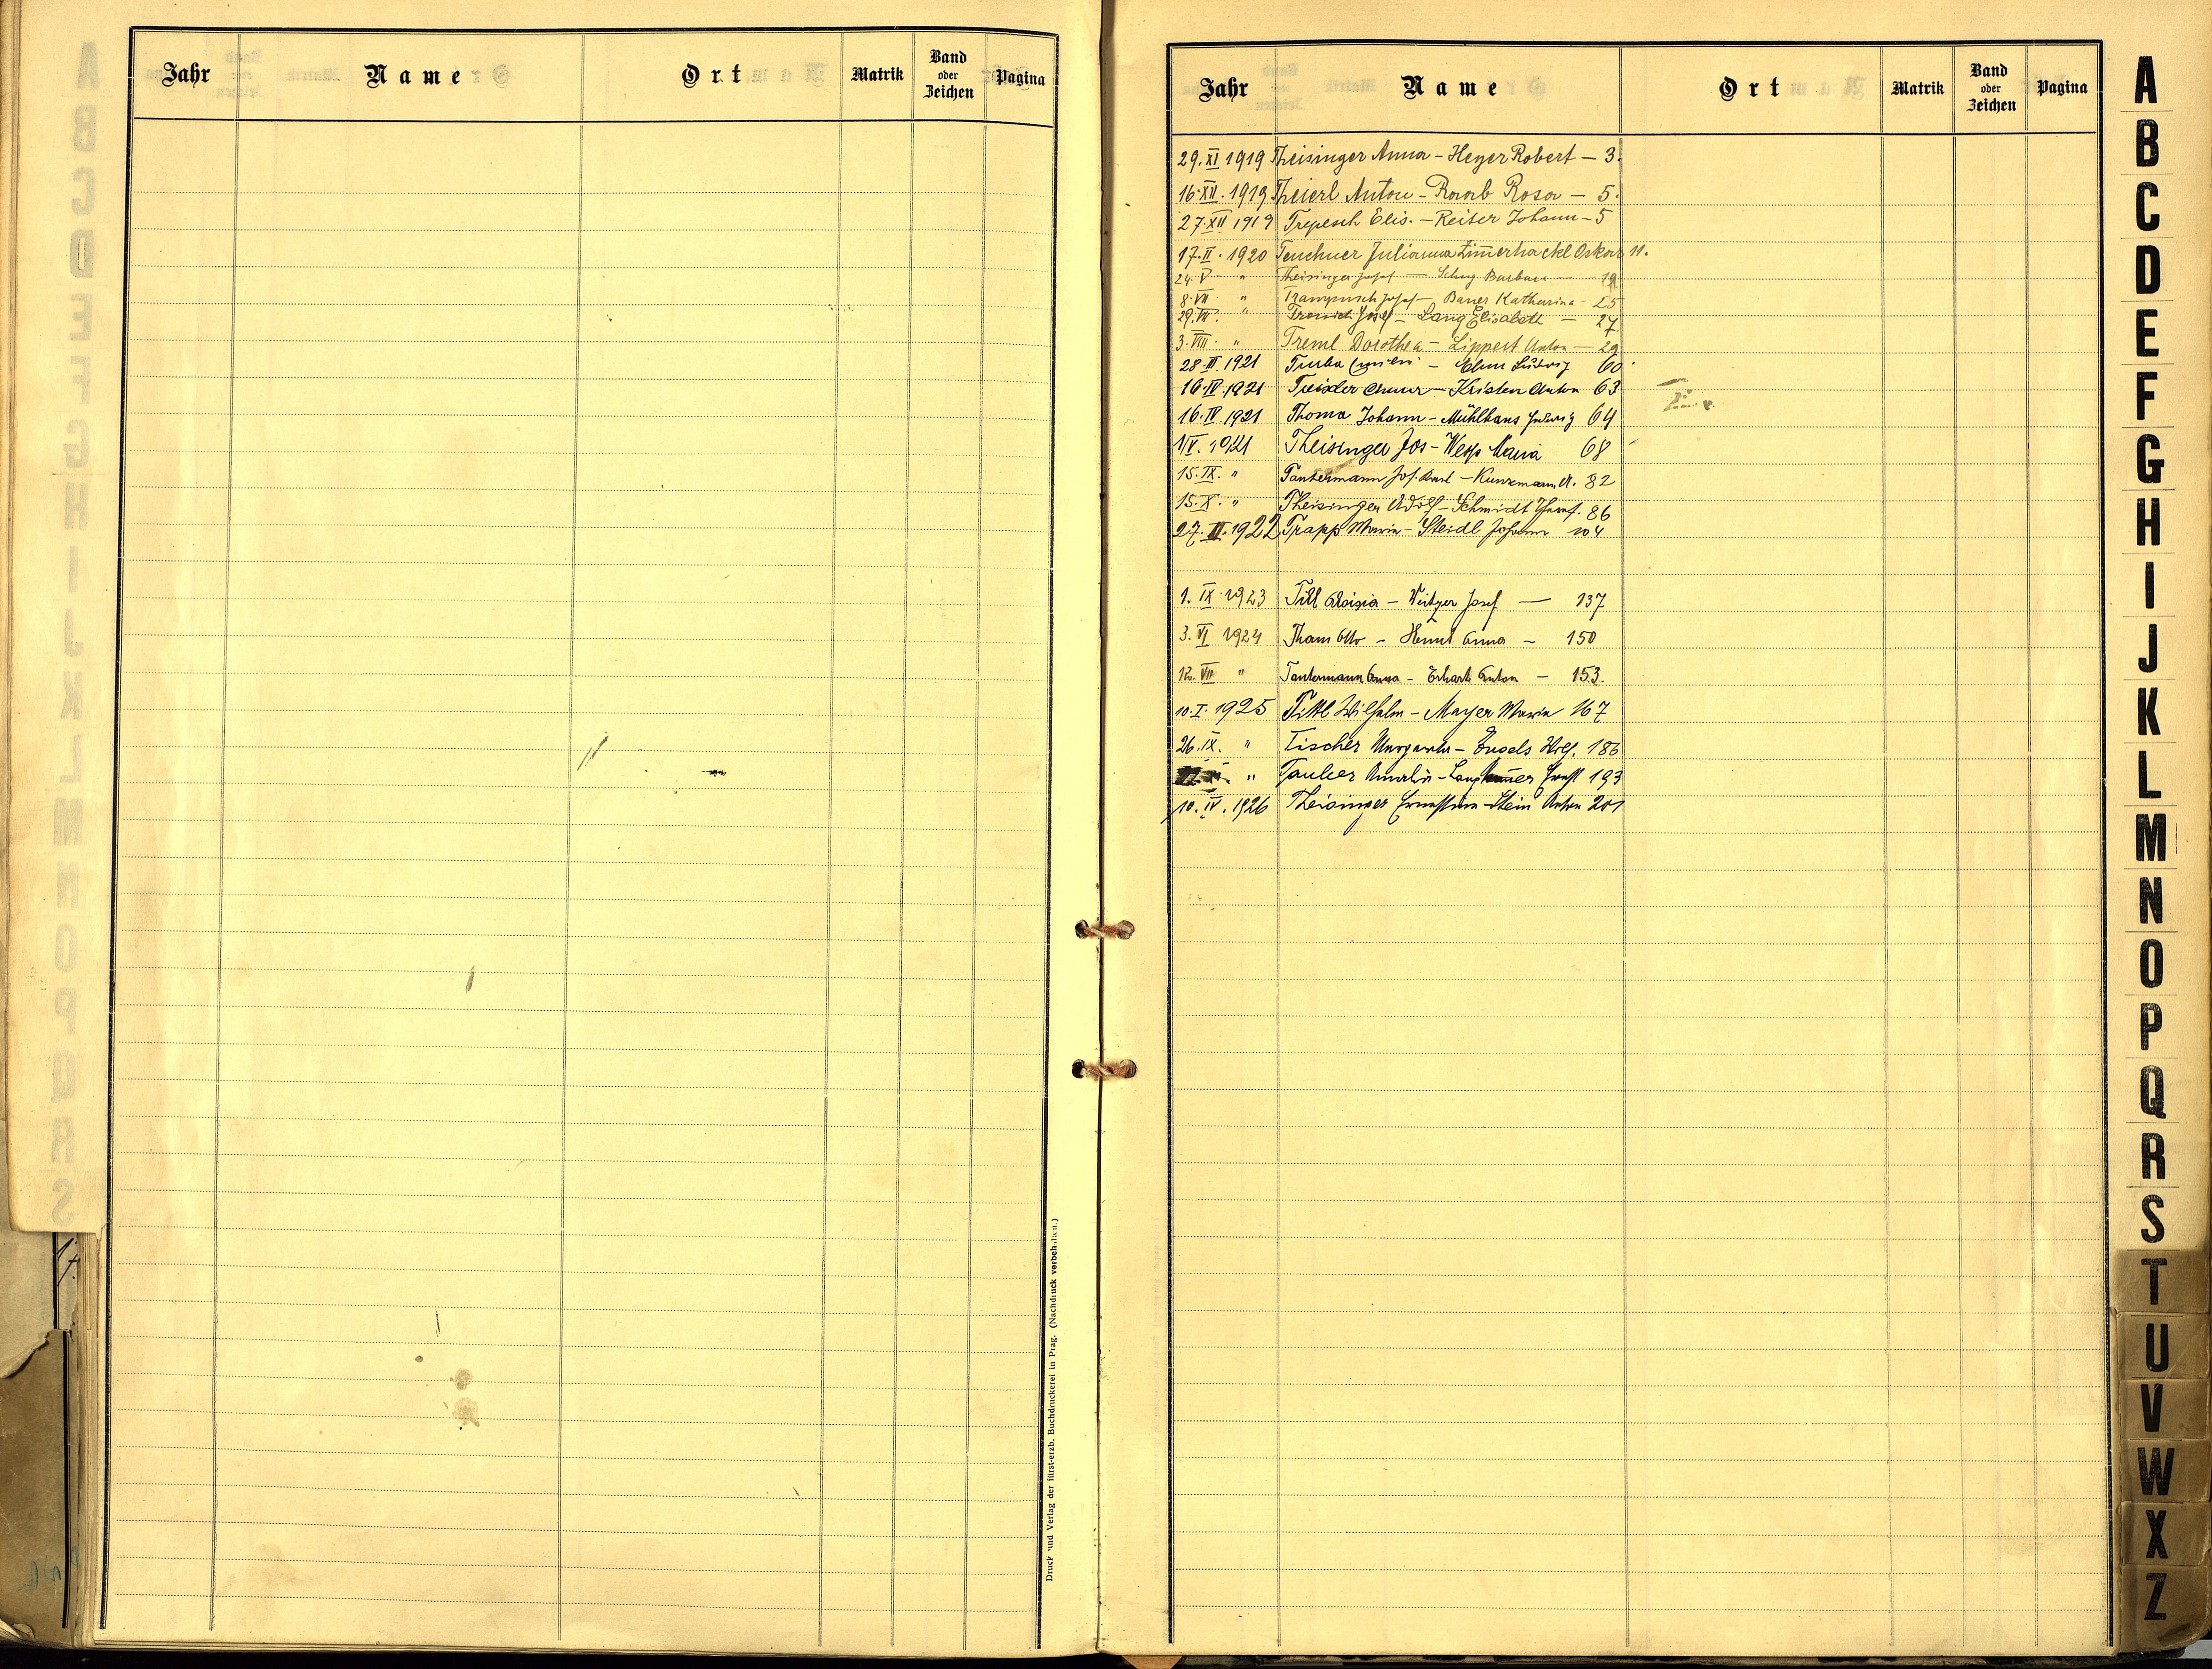 Jahr Name Ort Matrik Band oder Zeichen Pagina
Druck und Verlag der fürst-erzb. Buchdruckerei in Prag. (Nachdruck vorbehalten.)
Jahr Name Ort Matrik Band oder Zeichen Pagina
29. XI 1919 Theisinger Anna – Heyer Robert – 3.
16. XII. 1919 Theierl Anton – Raab Rosa – 5.
27. XII 1919 Trepesch Elis. – Reiter Johann – 5
17. II. 1920 Tenchner Julianna Zim̄erhackl Oskar 11.
24. V " Theisinger Josef — Barbara — 19
8. VII " Trampusch Josef – Bauer Katharina – 25
29. VII. " Josef – Lang Elisabeth — 27
3. VIII. " Treml Dorothea – Lippert Anton — 29
28. III. 1921 Tuba – Ludwig 60
16. IV. 1921 – Kristen Anton 63
16. IV. 1921 Thoma Johann – Mühlhans Hedwig 64
1/V. 1921 Theisinger Jos – Maria 68
15. IX. " Tautermann Jos. – Kunzmann A. 82
15. X. " Theisinger Adolf – Schmidt 86
27. 1922 Trapp Maria – Steidl Johann 104
1. IX. 1923 Till Aloisia – Josef — 137
3. VI 1924 Tham Otto – Anna – 150
12. VII " Tautermann Anna – Erhart Anton – 153.
10. I. 1925 Tittl Wilhelm – Mayer Maria 167
26. IX. " Tischer Margareta – Engels 186
" Tauber Amalie – Ernst 193
10. IV. 1926 Theisinger Ernestine – Stein Anton 201
A
B
C
D
E
F
G
H
I
J
K
L
M
N
O
P
Q
R
S
T
U
V
W
X
Z